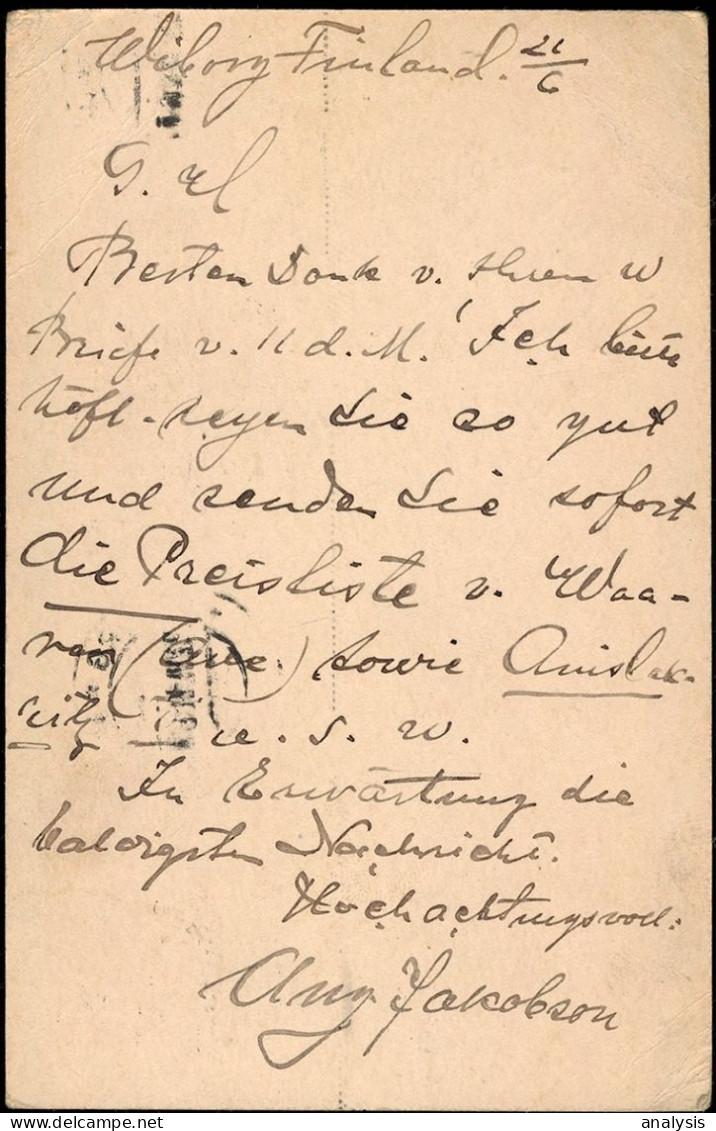 Wiborg Finland. 21/6
G. H
Besten Dank v. Ihrem W
Briefe v. 11 d. M. Ich bitte
höfl. seyen Sie so gut
und senden Sie sofort
die Preisliste v. Waa-
ren ( ) sowie Anislak-
ritz u. s. w.
In Erwartung die
baldigsten Nachricht.
Hochachtungsvoll:
Aug. Jakobson
analysis